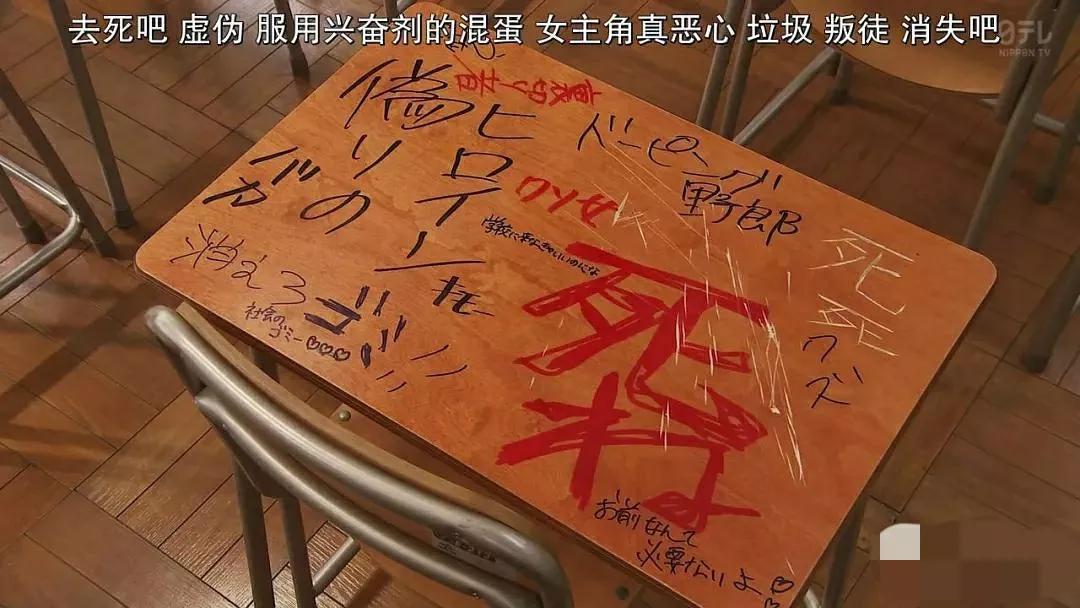 去死吧 虚伪 服用兴奋剂的混蛋 女主角真恶心 垃圾 叛徒 消失吧
日テレ
NIPPON TV
裏切り者
ドーピング
野郎
ヒロイン
キモー
偽りの
クソ女
学校に来なきゃいいのにな
死ね
死
死
クズ
消えろ
社会の
ゴミー♡♡♡
ゴミ
お前なんて
必要ないよ♡